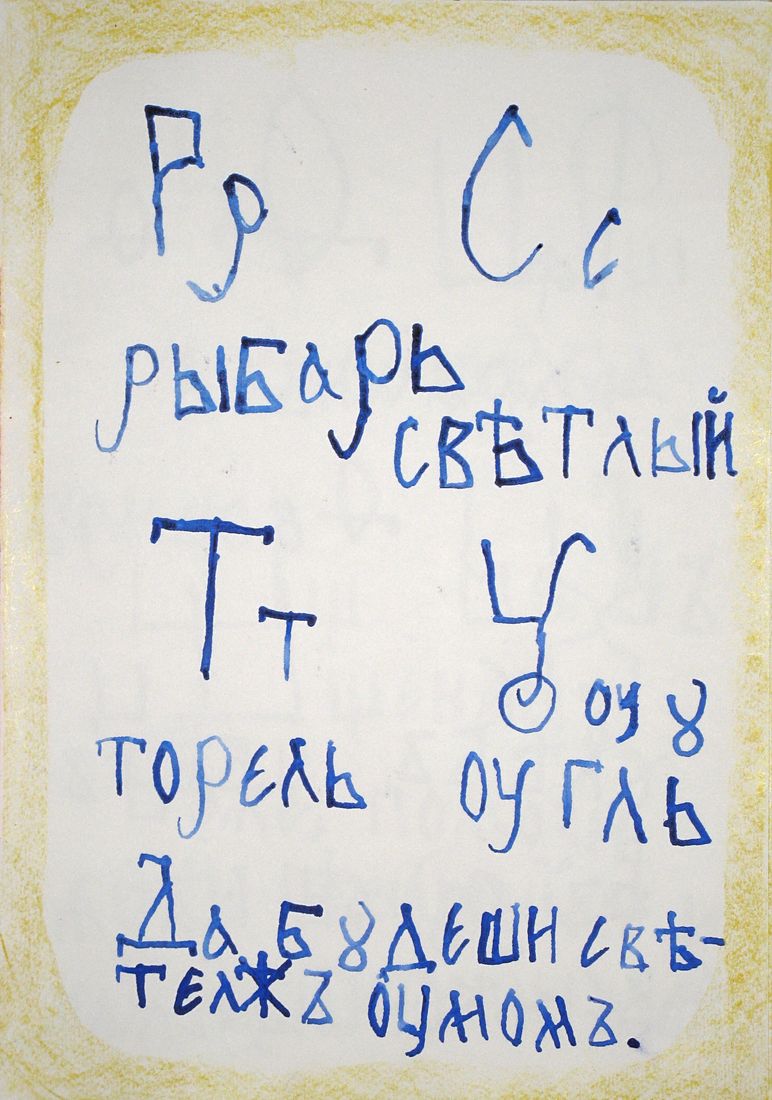 Р р С с
рыбарь
свѣтлый
Т т Ѹ
оу ꙋ
торель оугль
Да бꙋдеши свѣ-
телжъ оумомъ.